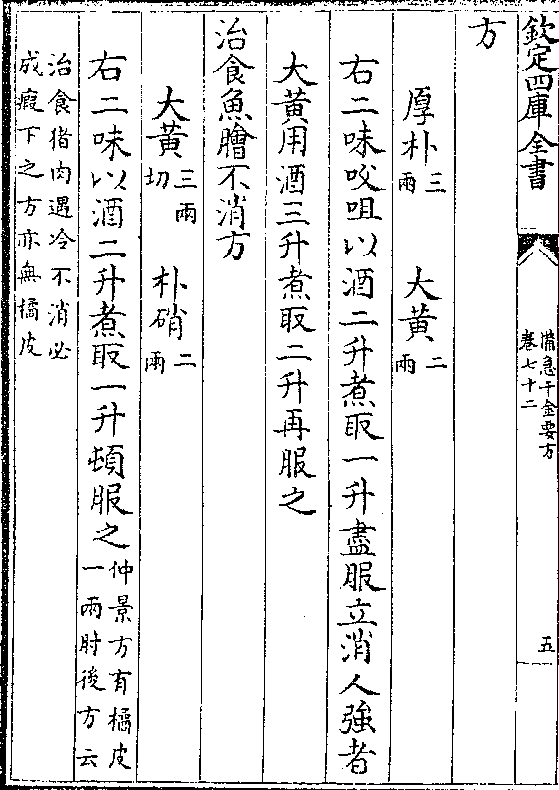 欽定四庫全書
備急千金要方
卷七十二
五
方
厚朴三兩 大黃二兩
右二味㕮咀以酒二升煮取一升盡服立消人強者
大黃用酒三升煮取二升再服之
治食魚膾不消方
大黃三兩切 朴硝二兩
右二味以酒二升煮取一升頓服之仲景方有橘皮一兩肘後方云
治食猪肉遇冷不消必
成癥下之方亦無橘皮